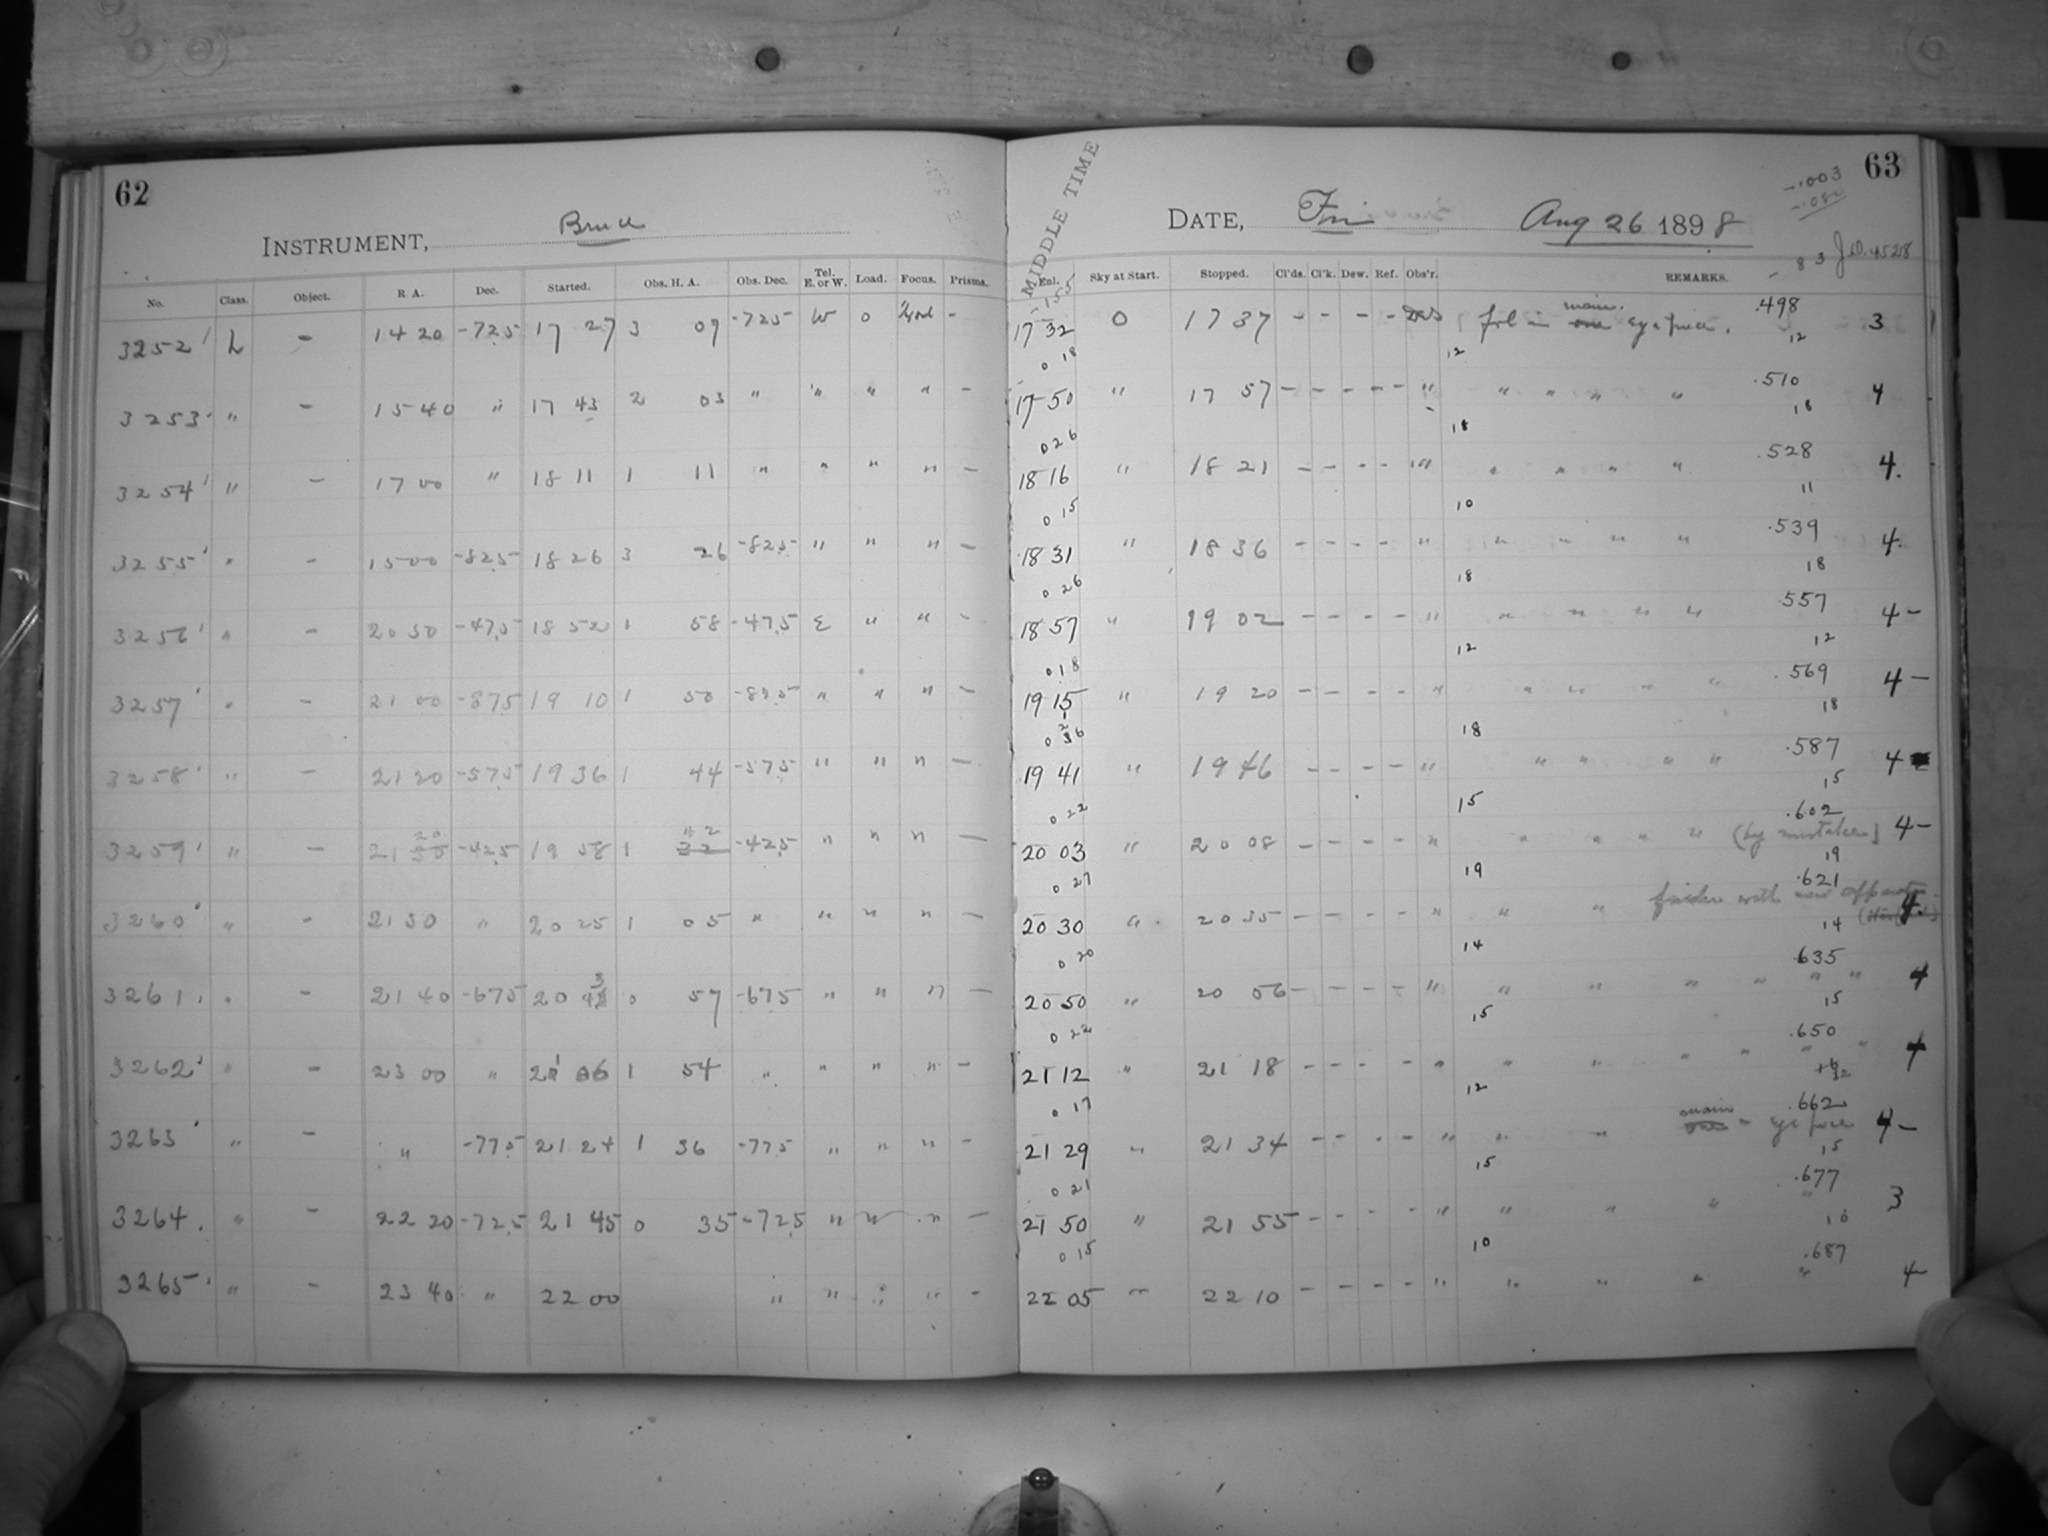 62
INSTRUMENT, Bruce
No. Class. Object. R. A. Dec. Started. Obs. H. A. Obs. Dec. Tel. E. or W. Load. Focus. Prisms.
3252 L – 14 20 -72.5 17 27 3 09 -72.5 W 0 Good –
3253 " – 15 40 " 17 43 2 03 " " " " –
3254 " – 17 00 " 18 11 1 11 " " " " –
3255 " – 15 00 -82.5 18 26 3 26 -82.5 " " " –
3256 " – 20 50 -47.5 18 52 1 58 -47.5 E " " –
3257 " – 21 00 -87.5 19 10 1 50 -87.5 " " " –
3258 " – 21 20 -57.5 19 36 1 44 -57.5 " " " –
3259 " – 21 20 -42.5 19 58 1 42 -42.5 " " " –
3260 " – 21 30 " 20 25 1 05 " " " " –
3261 " – 21 40 -67.5 20 43 0 57 -67.5 " " " –
3262 " – 23 00 " 21 06 1 54 " " " " –
3263 " – " -77.5 21 24 1 36 -77.5 " " " –
3264 " – 22 20 -72.5 21 45 0 35 -72.5 " " " –
3265 " – 23 40 " 22 00 " " " " –
63
MIDDLE TIME
DATE, Fri Aug 26 1898
-.003
-.082
- 83 J.D. 4528
Enl. Sky at Start. Stopped. Cl'ds. Cl'k. Dew. Ref. Obs'r. REMARKS.
-155
17 32 0 17 37 – – – – fol in main eyepiece. .498 3
0 18 12 12
17 50 " 17 57 – – – – " " " " " .510 4
0 26 18 18
18 16 " 18 21 – – – – " " " " " .528 4.
0 15 10 11
18 31 " 18 36 – – – – " " " " " .539 4.
0 26 18 18
18 57 " 19 02 – – – – " " " " " .557 4–
0 18 12 12
19 15 " 19 20 – – – – " " " " " .569 4–
0 26 18 18
19 41 " 19 46 – – – – " " " " " .587 4
0 22 15 15
20 03 " 20 08 – – – – " " " " " (by mistake) .602 4–
0 27 19 19
20 30 " 20 35 – – – – " " " finder with new .621 4.
0 20 14 14
20 50 " 20 56 – – – – " " " " " " " .635 4
0 22 15 15
21 12 " 21 18 – – – – " " " " " " " .650 4
0 17 12 12
21 29 " 21 34 – – – – " " " main eyepiece .662 4–
0 21 15 15
21 50 " 21 55 – – – – " " " " " .677 3
0 15 10 10
22 05 " 22 10 – – – – " " " " " .687 4